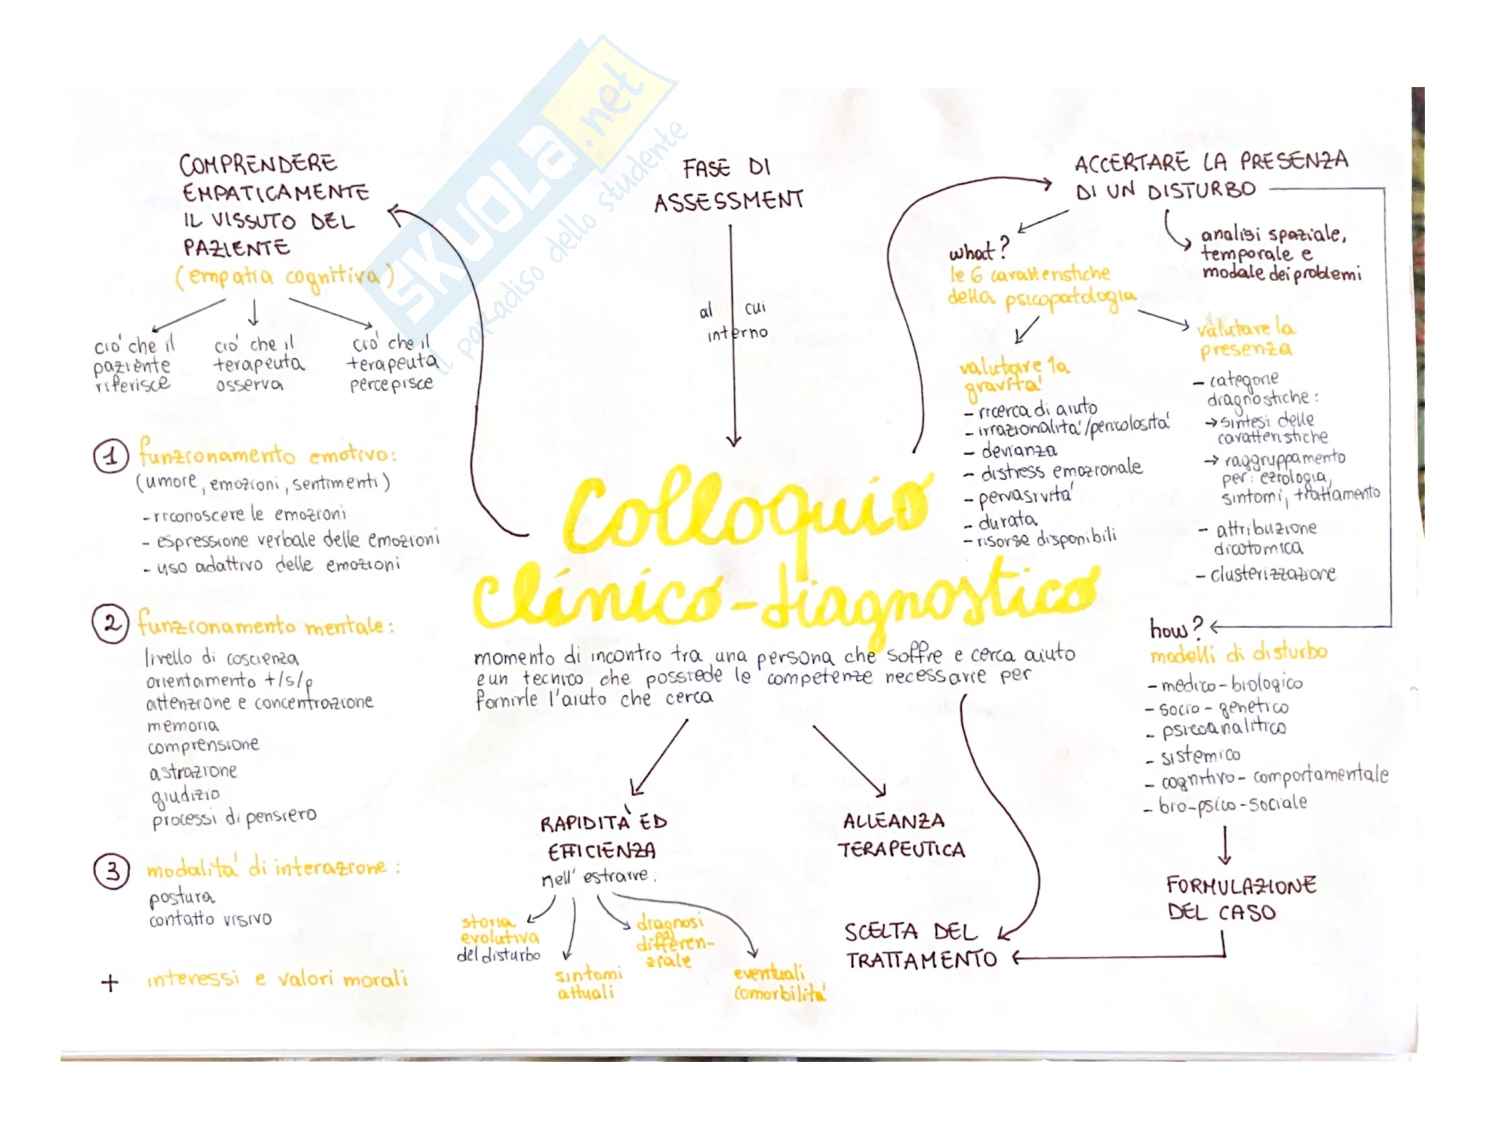 SKUOLA.net
il paradiso dello studente
COMPRENDERE
EMPATICAMENTE
IL VISSUTO DEL
PAZIENTE
(empatia cognitiva)
ciò che il
paziente
riferisce
ciò che il
terapeuta
osserva
ciò che il
terapeuta
percepisce
1 funzionamento emotivo:
(umore, emozioni, sentimenti)
- riconoscere le emozioni
- espressione verbale delle emozioni
- uso adattivo delle emozioni
2 funzionamento mentale:
livello di coscienza
orientamento t/s/p
attenzione e concentrazione
memoria
comprensione
astrazione
giudizio
processi di pensiero
3 modalità di interazione:
postura
contatto visivo
+ interessi e valori morali
FASE DI
ASSESSMENT
al cui
interno
Colloquio
clinico-diagnostico
momento di incontro tra una persona che soffre e cerca aiuto
e un tecnico che possiede le competenze necessarie per
fornirle l'aiuto che cerca
RAPIDITÀ ED
EFFICIENZA
nell'estrarre:
storia
evolutiva
del disturbo
sintomi
attuali
diagnosi
differen-
ziale
eventuali
comorbilità
ALLEANZA
TERAPEUTICA
SCELTA DEL
TRATTAMENTO
ACCERTARE LA PRESENZA
DI UN DISTURBO
what?
le 6 caratteristiche
della psicopatologia
analisi spaziale,
temporale e
modale dei problemi
valutare la
gravità
- ricerca di aiuto
- irrazionalità/pericolosità
- devianza
- distress emozionale
- pervasività
- durata
- risorse disponibili
valutare la
presenza
- categorie
diagnostiche:
→ sintesi delle
caratteristiche
→ raggruppamento
per: eziologia,
sintomi, trattamento
- attribuzione
dicotomica
- clusterizzazione
how?
modelli di disturbo
- medico-biologico
- socio-genetico
- psicoanalitico
- sistemico
- cognitivo-comportamentale
- bio-psico-sociale
FORMULAZIONE
DEL CASO